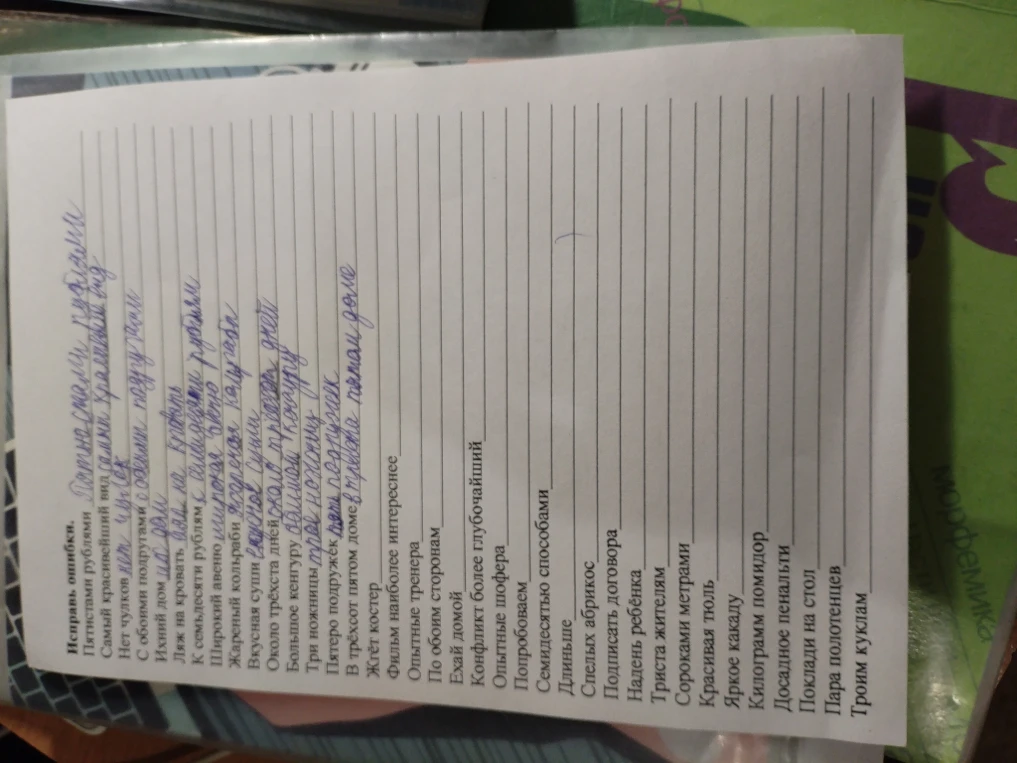 Исправь ошибки.
Пятистами рублями Пятнастами рублями
Самый красивейший вид самый красивый вид
Нет чулков нет чулок
С обоими подругами с обеими подругами
Ихний дом их дом
Ляж на кровать ляг на кровать
К семьдесяти рублям к семидесяти рублям
Широкий авеню широкая авеню
Жареный кольраби жареная кольраби
Вкусная суши вкусное суши
Около трёхста дней около трёхсот дней
Большое кенгуру большой кенгуру
Три ножницы трое ножниц
Пятеро подружек пять подружек
В трёхсот пятом доме в триста пятом доме
Жгёт костер
Фильм наиболее интереснее
Опытные тренера
По обоим сторонам
Ехай домой
Конфликт более глубочайший
Опытные шофера
Попробоваем
Семидесятью способами
Длиньше
Спелых абрикос
Подписать договора
Надень ребёнка
Триста жителям
Сороками метрами
Красивая тюль
Яркое какаду
Килограмм помидор
Досадное пенальти
Поклади на стол
Пара полотенцев
Троим куклам
морфемики